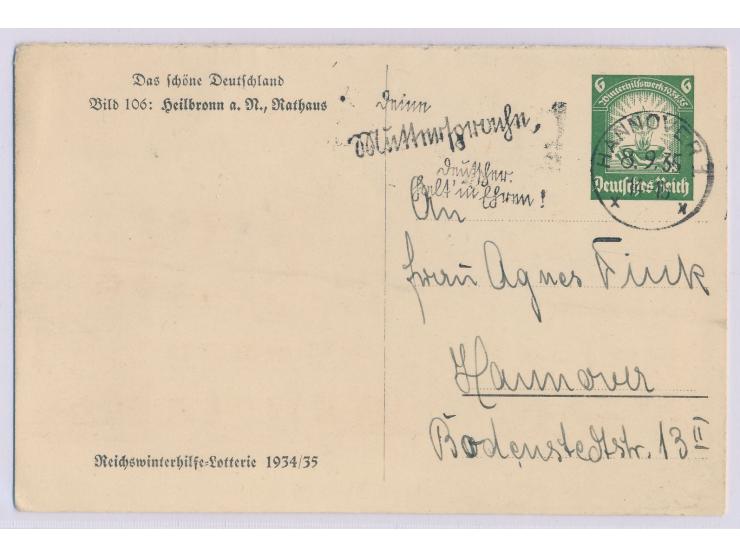 Das schöne Deutschland
Bild 106: Heilbronn a. N., Rathaus
Deine
Muttersprache,
Deutscher.
halt' in Ehren!
6 6
Winterhilfswerk 1934/35
Deutsches Reich
HANNOVER 1
8.9.35
An
Frau Agnes Finck
Hannover
Bodenstedtstr. 13 II
Reichswinterhilfe-Lotterie 1934/35